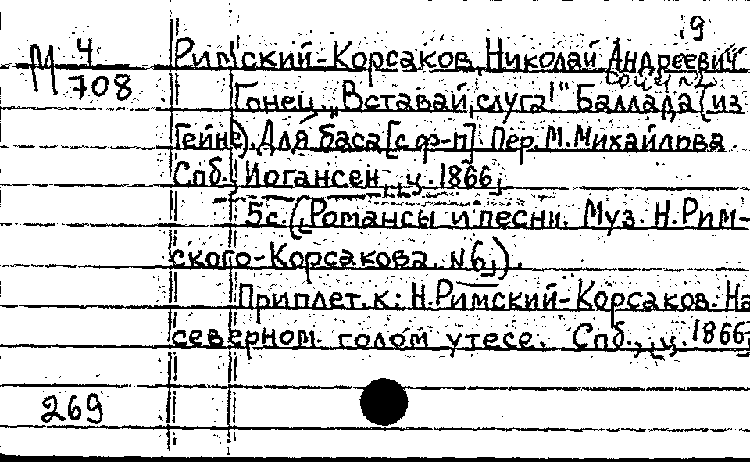 9
М 4/708
Римский-Корсаков, Николай Андреевич
соч. 4 №2
Гонец. „Вставай, слуга!" Баллада (из
Гейне). Для баса [с ф-п]. Пер. М. Михайлова
Спб., Иогансен, ц. 1866,
5с. („Романсы и песни. Муз. Н. Рим-
ского-Корсакова. №6").
Приплет. к: Н. Римский-Корсаков. На
северном голом утесе. Спб., ц. 1866,
269